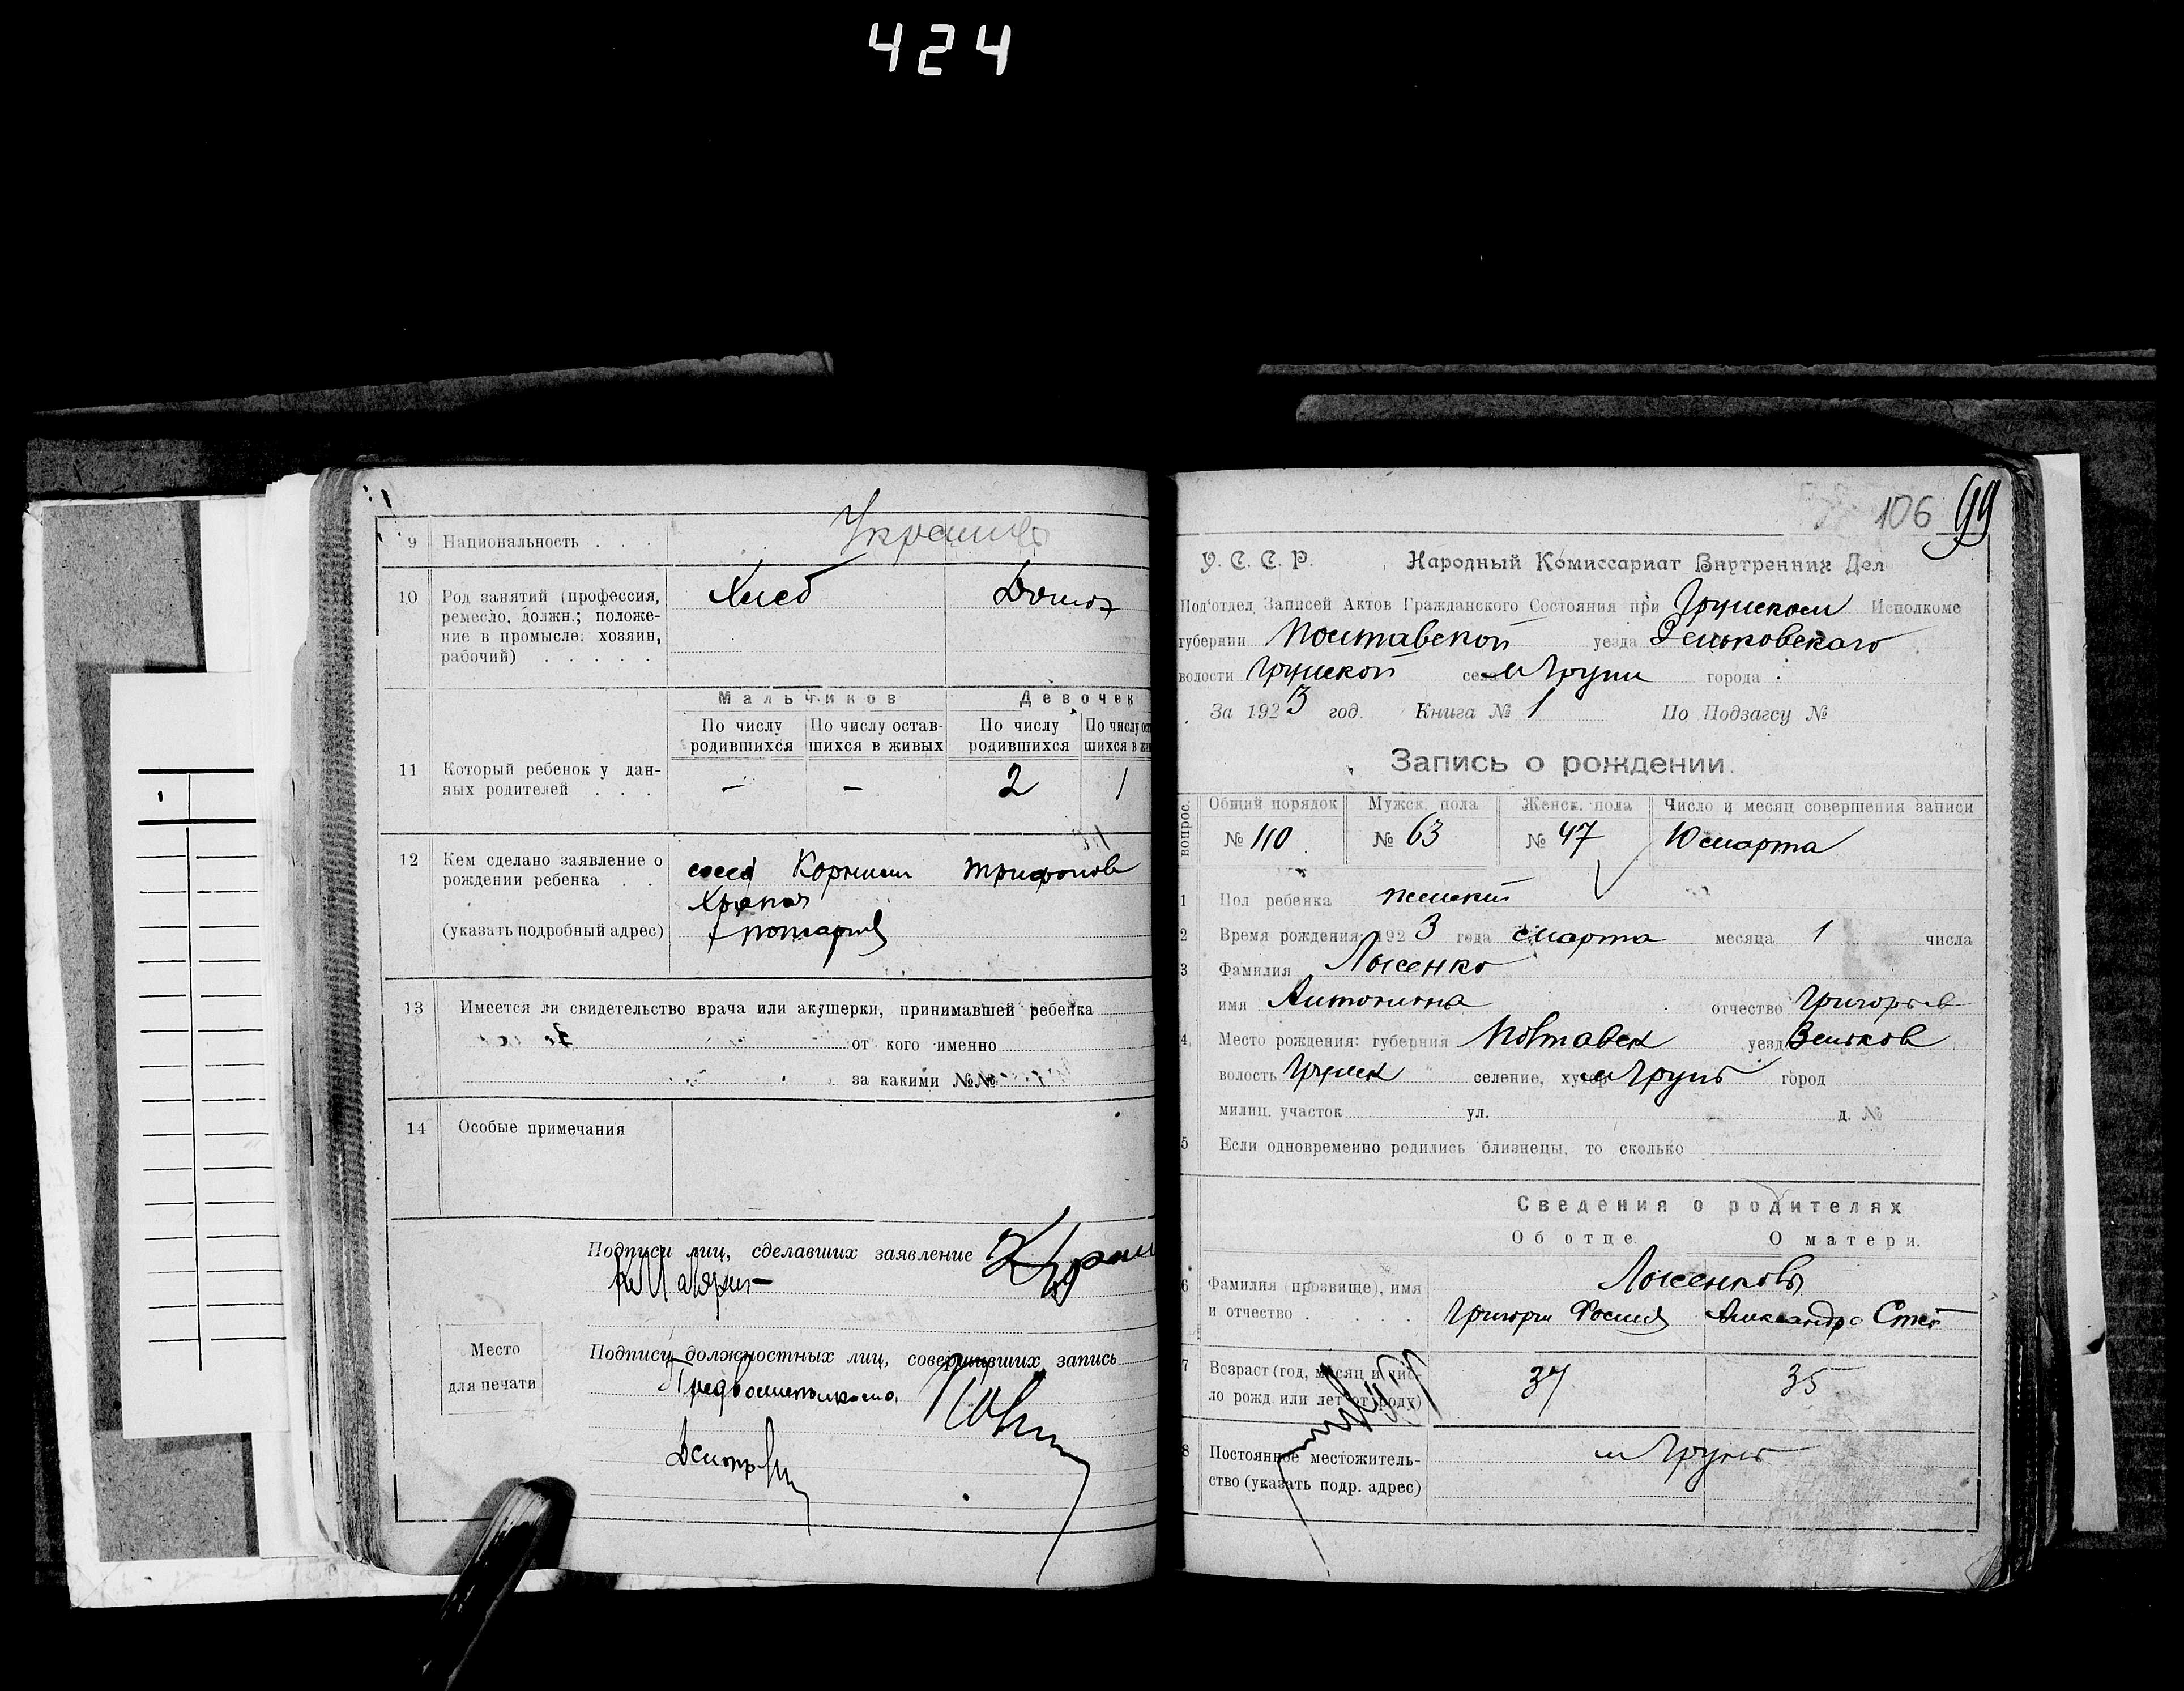 424
9 Национальность . . .
10 Род занятий (профессия,
ремесло, должн.; положе-
ние в промысле: хозяин,
рабочий) . . . . .
Хлеб Домох
Мальчиков Девочек
По числу
родившихся
По числу остав-
шихся в живых
По числу
родившихся
11 Который ребенок у дан-
ных родителей . . .
— — 2 1
12 Кем сделано заявление о
рождении ребенка . .
(указать подробный адрес)
13 Имеется ли свидетельство врача или акушерки, принимавшей ребенка
от кого именно
за какими №№
14 Особые примечания
Подписи лиц, сделавших заявление
Место
для печати
Подписи должностных лиц, совершивших запись
106 99
У. С. С. Р. Народный Комиссариат Внутренних Дел
Под'отдел Записей Актов Гражданского Состояния при Грунском Исполкоме
губернии Полтавской уезда Зеньковскаго
волости Грунской села м Груни города
За 1923 год. Книга № 1 По Подзагсу №
Запись о рождении.
вопрос. Общий порядок Мужск. пола Женск. пола Число и месяц совершения записи
№ 110 № 63 № 47 10 марта
1 Пол ребенка женский
2 Время рождения: 1923 года марта месяца 1 числа
3 Фамилия Лысенко
имя Антонина отчество Григорьев
4 Место рождения: губерния Полтавск уезд Зеньков
волость Грунск селение, хутор м Грунь город
милиц. участок ул. д. №
5 Если одновременно родились близнецы, то сколько
Сведения о родителях
Об отце. О матери.
6 Фамилия (прозвище), имя
и отчество . . . .
Лысенковы
Григорий Александра
7 Возраст (год, месяц и чис-
ло рожд. или лет от роду)
37 35
8 Постоянное местожитель-
ство (указать подр. адрес)
м Грунь